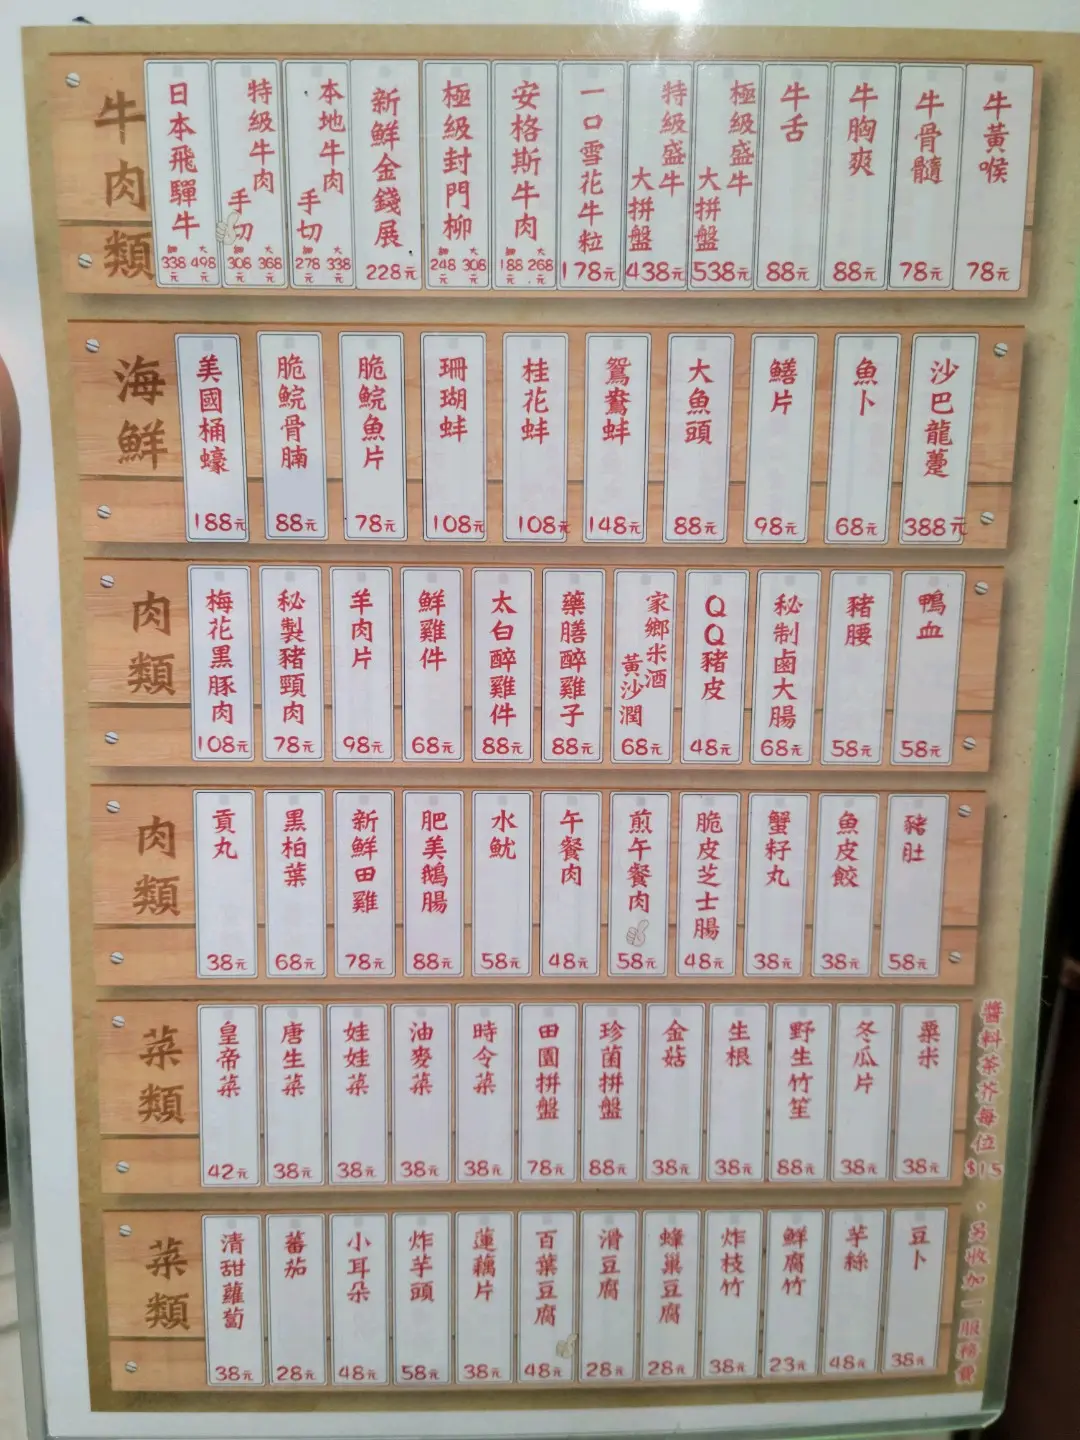 牛肉類
日本飛驒牛 細 338元 大 498元
特級牛肉 手切 細 308元 大 368元
本地牛肉 手切 細 278元 大 338元
新鮮金錢展 228元
極級封門柳 細 248元 大 308元
安格斯牛肉 細 188元 大 268元
一口雪花牛粒 178元
特級盛牛 大拼盤 438元
極級盛牛 大拼盤 538元
牛舌 88元
牛胸爽 88元
牛骨髓 78元
牛黃喉 78元
海鮮
美國桶蠔 188元
脆鯇骨腩 88元
脆鯇魚片 78元
珊瑚蚌 108元
桂花蚌 108元
鴛鴦蚌 148元
大魚頭 88元
鱔片 98元
魚卜 68元
沙巴龍躉 388元
肉類
梅花黑豚肉 108元
秘製豬頸肉 78元
羊肉片 98元
鮮雞件 68元
太白醉雞件 88元
藥膳醉雞子 88元
家鄉米酒 黃沙潤 68元
QQ豬皮 48元
秘制鹵大腸 68元
豬腰 58元
鴨血 58元
肉類
貢丸 38元
黑柏葉 68元
新鮮田雞 78元
肥美鵝腸 88元
水魷 58元
午餐肉 48元
煎午餐肉 58元
脆皮芝士腸 48元
蟹籽丸 38元
魚皮餃 38元
豬肚 58元
菜類
皇帝菜 42元
唐生菜 38元
娃娃菜 38元
油麥菜 38元
時令菜 38元
田園拼盤 78元
珍菌拼盤 88元
金菇 38元
生根 38元
野生竹笙 88元
冬瓜片 38元
粟米 38元
菜類
清甜蘿蔔 38元
蕃茄 28元
小耳朵 48元
炸芋頭 58元
蓮藕片 38元
百葉豆腐 48元
滑豆腐 28元
蜂巢豆腐 28元
炸枝竹 38元
鮮腐竹 23元
芋絲 48元
豆卜 38元
醬料茶芥每位$15，另收加一服務費